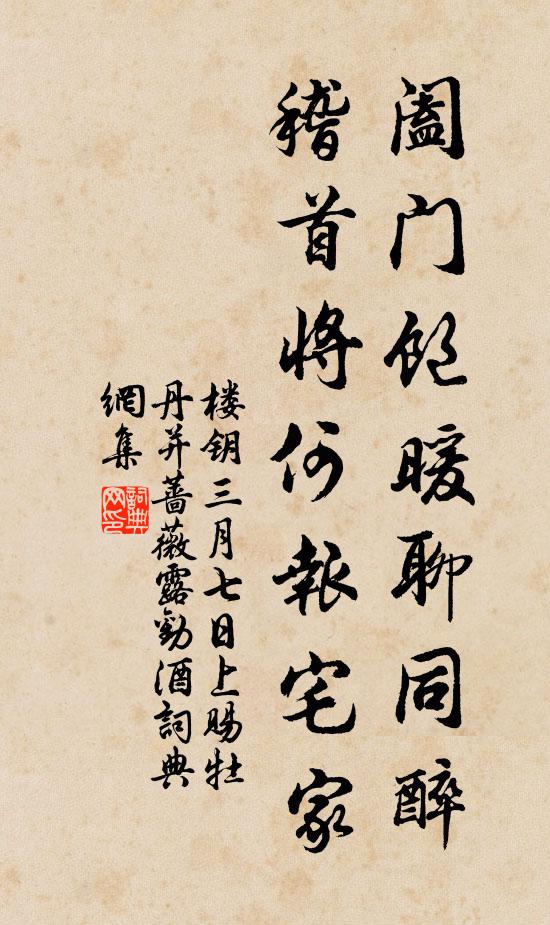 阖门饱暖聊同醉
稽首将何报宅家
楼钥三月七日上赐牡
丹并蔷薇露劝酒詞典
網集
詞典
网印